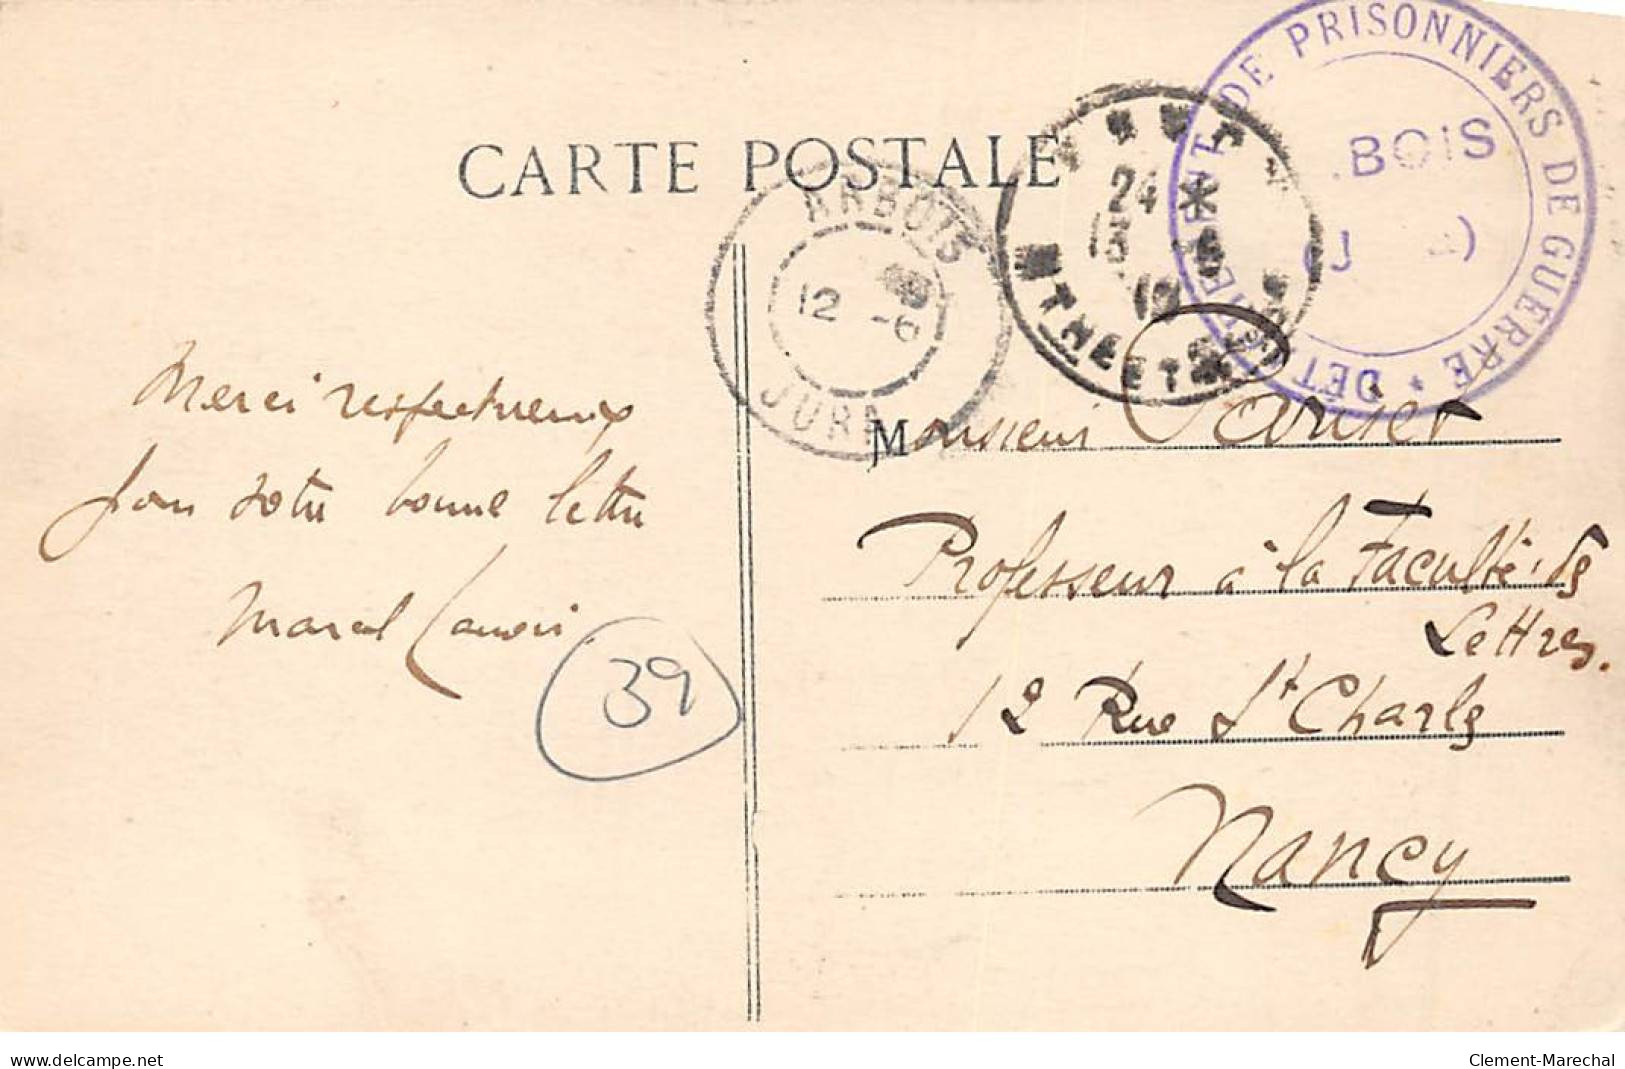 CARTE POSTALE
DÉTACHEMENT DE PRISONNIERS DE GUERRE *
BOIS
(J
ARBOIS
12 -6
JURA
24 *
MTHE ET
Merci respectueux
pour votre bonne lettre
Marcel
39
Monsieur
Professeur à la Faculté des
Lettres.
12 Rue St Charles
Nancy
www.delcampe.net
Clement-Marechal